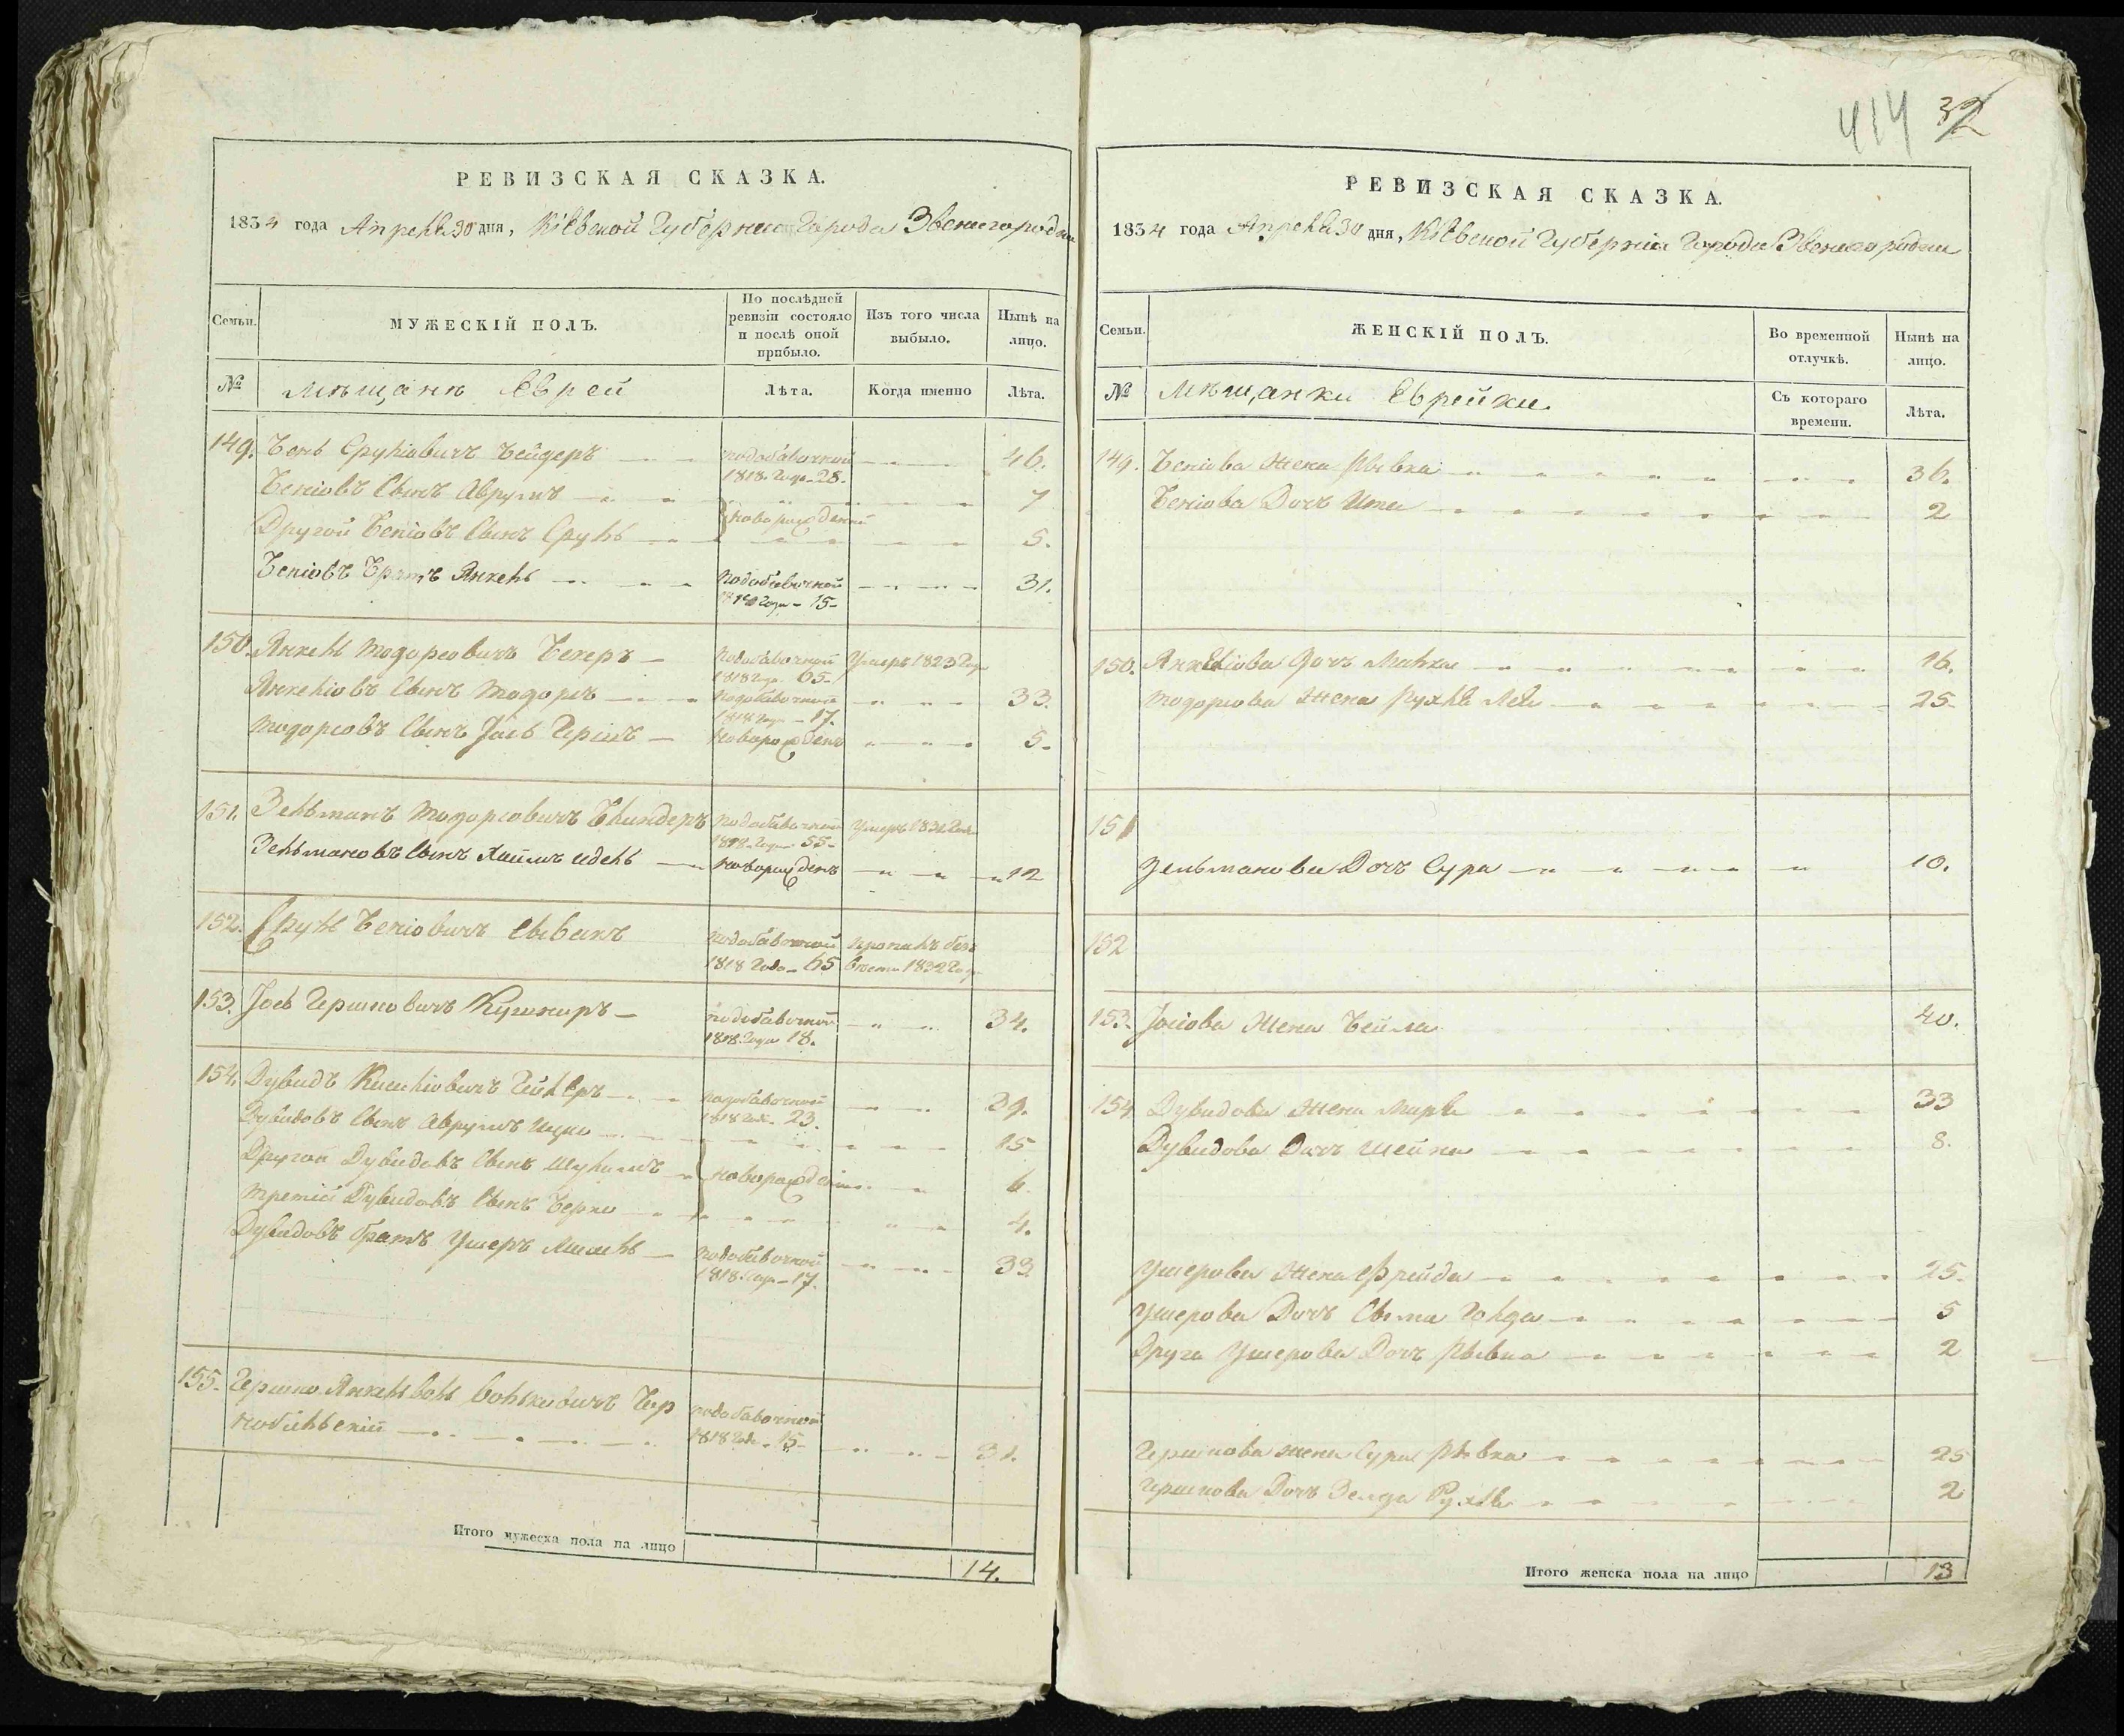 414 32
РЕВИЗСКАЯ СКАЗКА.
1834 года Апреля 30 дня, Кіевской Губерніи Города Звенигородки
Семьи.
МУЖЕСКІЙ ПОЛЪ.
По послѣдней ревизіи состояло и послѣ оной прибыло.
Изъ того числа выбыло.
Нынѣ на лицо.
№ Мѣщане Евреи
Лѣта.
Когда именно
Лѣта.
149. Бень Сруліовичъ Бейдеръ подобавочной 1818 Года 28. 46.
Беніовъ Сынъ Аврумъ 7
новорожденній
Другой Беніовъ Сынъ Сруль 5.
Беніовъ Братъ Янкель подобавочной 1818 Года 15 31.
150. Янкель Тодоровичъ Бекеръ подобавочной 1818 Года 65 Умеръ 1823 Года
Янкеліовъ Сынъ Тодоръ подобавочной 1818 Года 17. 33.
Іось Гершъ новорожденъ 5.
151. Зельманъ подобавочной 1818 Года 55 Умеръ
Зельмановъ Сынъ Хаимъ новорожденъ 12
152. Сруль Беніовичъ подобавочной 1818 Года 65 пропалъ безъ вести 1832 Года
153. Іось Гершковичъ Кушниръ подобавочной 1818 Года 18. 34.
154. Дувидъ подобавочной 1818 Года 23. 39.
Дувидовъ Сынъ Аврумъ Ицко 15
Другой Дувидовъ Сынъ новорожденіи 6.
Третій Дувидовъ Сынъ Берко 4.
Дувидовъ братъ Умеръ подобавочной 1818 Года 17. 33.
155. Гершко Янкель Волько Вольковичъ Чер
нобильский подобавочной 1818 Года 15 31.
Итого мужеска пола на лицо 14.
РЕВИЗСКАЯ СКАЗКА.
1834 года Апреля 30 дня, Кіевской Губерніи Города Звенигородки
Семьи.
ЖЕНСКІЙ ПОЛЪ.
Во временной отлучкѣ.
Нынѣ на лицо.
№ Мѣщанки Еврейки
Съ котораго времени.
Лѣта.
149. Беніова Жена Рывка 36.
Беніова Дочь Ита 2
150. Янкеліова Дочъ Малка 16.
Жена Рухля Лея 25
151
Зельманова Дочъ Сура 10.
152
153. Іосіова Жена Бейла 40.
154 Дувидова Жена Миря 33
Дувидова Дочъ Шейна 8.
Ушерова Жена Фрейда 25.
Ушерова Дочъ Сыма Голда 5
Друга Ушерова Дочъ Рывка 2
Гершкова жена Сура Рывка 25
Гершкова Дочъ Зелда Рухля 2
Итого женска пола на лицо 13